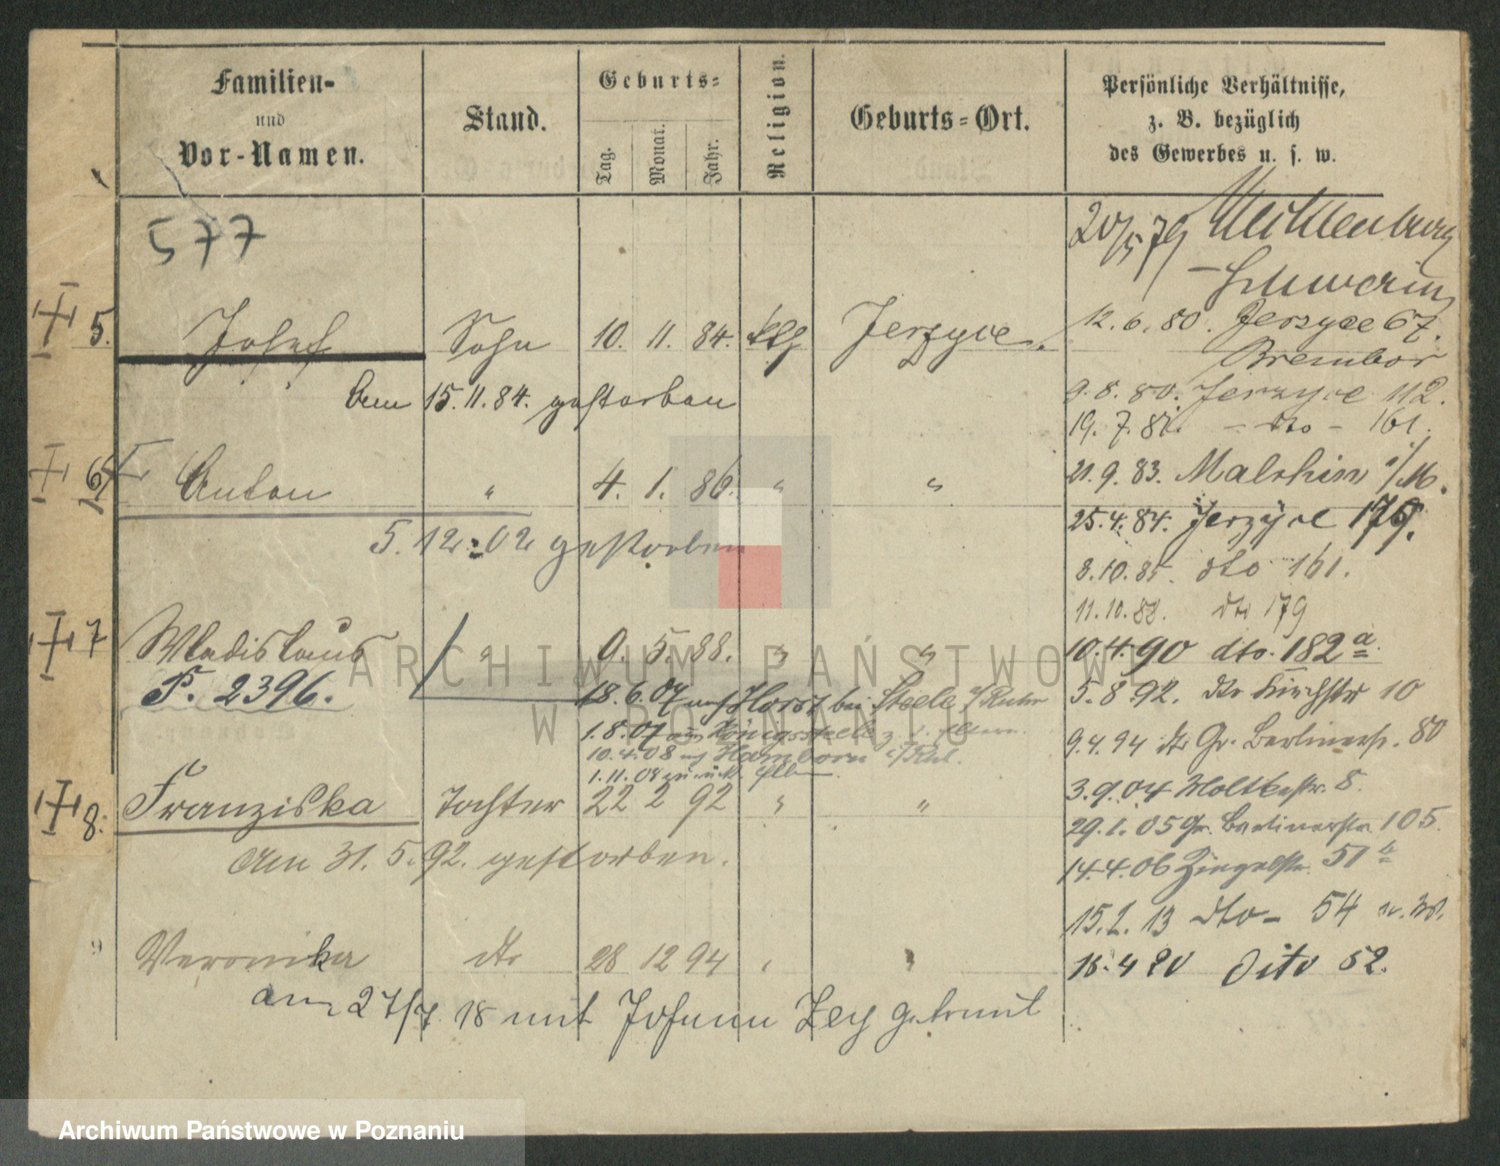 Familien-
und
Vor-Namen.
Stand.
Geburts-
Tag.
Monat.
Jahr.
Religion.
Geburts-Ort.
Persönliche Verhältnisse,
z. B. bezüglich
des Gewerbes u. s. w.
577
20/5 79 Mecklenburg
- Schwerin
5. Josef Sohn 10. 11. 84. ktl Jerzyce.
12. 6. 80. Jerzyce 67.
Brembor
Am 15. 11. 84. gestorben
9. 8. 80. Jerzyce 112.
19. 7. 81. - dto - 161.
6 Anton " 4. 1. 86. " "
21. 9. 83. Malchin i/M.
25. 4. 84. Jerzyce 179.
5. 12. 02 gestorben
8. 10. 85. dto 161.
11. 10. 88. dto 179
7 Wladislaus " 9. 5. 88. " "
10. 4. 90 dto. 182 a
P. 2396.
18. 6. 07 auf Horst bei Steele a/Ruhr
5. 8 92. dto Kirchstr 10
1. 8. 07 aus Königssteele z. d. Eltern.
9. 4. 94 dto Gr. Berlinerstr. 80
10. 4. 08 n/ Hamborn a/Rh.
1. 11. 08 zurück Eltern.
8. Franziska Tochter 22 2 92 " "
3. 9. 04 Moltkestr. 8.
29. 1. 05 Gr. Berlinerstr. 105.
Am 31. 5. 92. gestorben.
14. 4. 06 Ziegelstr. 51
15. 1. 13 dto - 54
" Veronika dto 28 12 94 " "
18. 4 20 dito 52.
am 27/7 18 mit Johann Ley getraut
ARCHIWUM PAŃSTWOWE
W POZNANIU
Archiwum Państwowe w Poznaniu